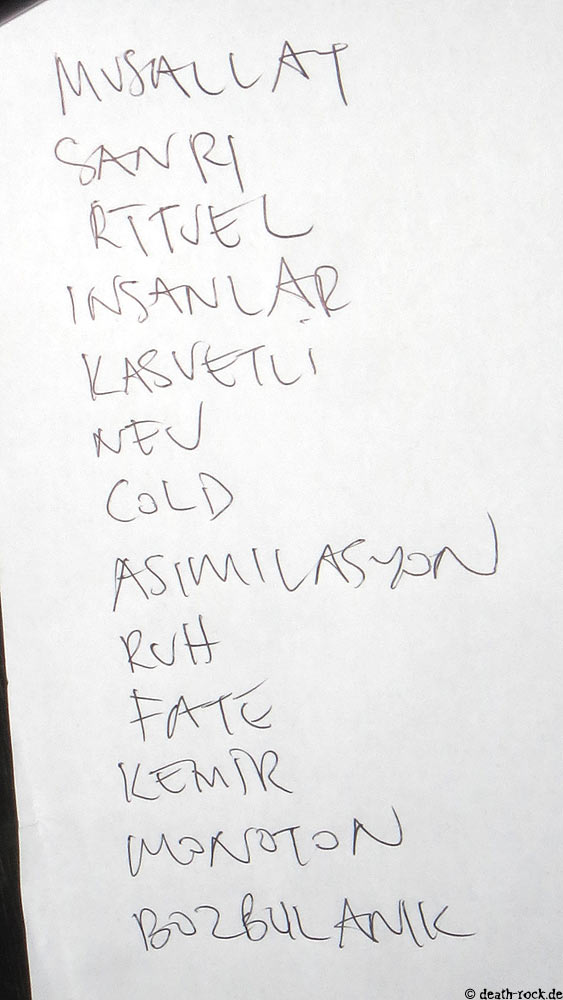 MUSALLAT
SANRI
RITUEL
INSANLAR
KASVETLİ
NEU
COLD
ASIMILASYON
RUH
FATE
KEMIR
MONOTON
BOZBULANIK
© death-rock.de